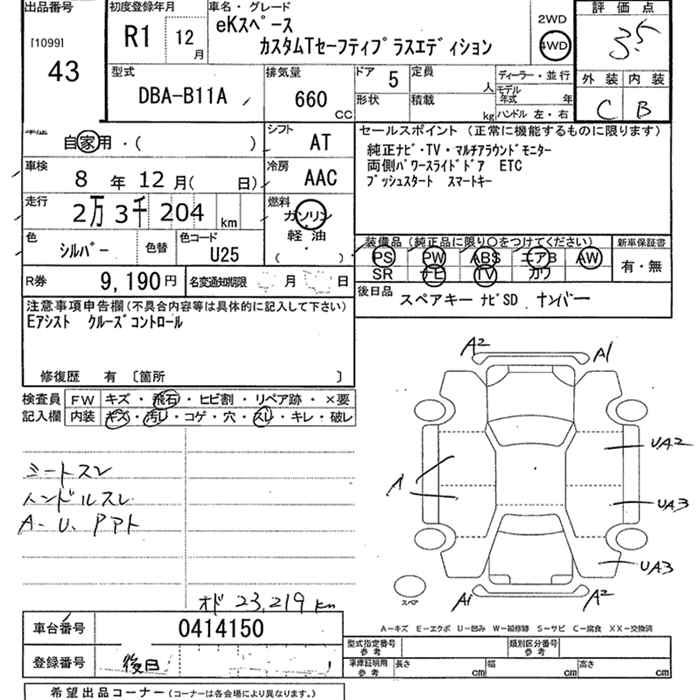 出品番号 初度登録年月 車名・グレード 評価点
[1099] R1 12月 eKスペース 2WD 3.5
43 カスタムTセーフティプラスエディション 4WD
外装 内装
型式 排気量 ドア 5 定員 人 ディーラー・並行 C B
DBA-B11A 660 CC 形状 積載 kg モデル年式 年
ハンドル 左・右
自家用・( ) シフト AT セールスポイント (正常に機能するものに限ります)
車検 8 年 12 月( 日) 冷房 AAC 純正ナビ・TV・マルチアラウンドモニター
両側パワースライドドア ETC
プッシュスタート スマートキー
走行 2万 3千 204 km 燃料 ガソリン
軽・油
( )
色 シルバー 色替 色コード U25 装備品 (純正品に限り○をつけてください) 新車保証書
PS PW ABS エアB AW 有・無
SR ナビ TV カワ
R券 9,190 円 名変通知期限 月 日 後日品 スペアキー ナビSD ナンバー
注意事項申告欄 (不具合内容等は具体的に記入して下さい)
Eアシスト クルーズコントロール
修復歴 有 〔箇所 〕
検査員 FW キズ・飛石・ヒビ割・リペア跡・×要
記入欄 内装 キズ・汚レ・コゲ・穴・スレ・キレ・破レ
A2 A1
シートスレ
ハンドルスレ
A.U.Pアト
A UA2
UA3
UA3
スペア A1 A2
オド 23,219 km
A-キズ E-エクボ U-凹み W-補修跡 S-サビ C-腐食 XX-交換済
車台番号 0414150
登録番号 後日
型式指定番号 参考 類別区分番号 参考
車庫証明用 参考 長さ cm 幅 cm 高さ cm
希望出品コーナー (コーナーは各会場により異なります。)